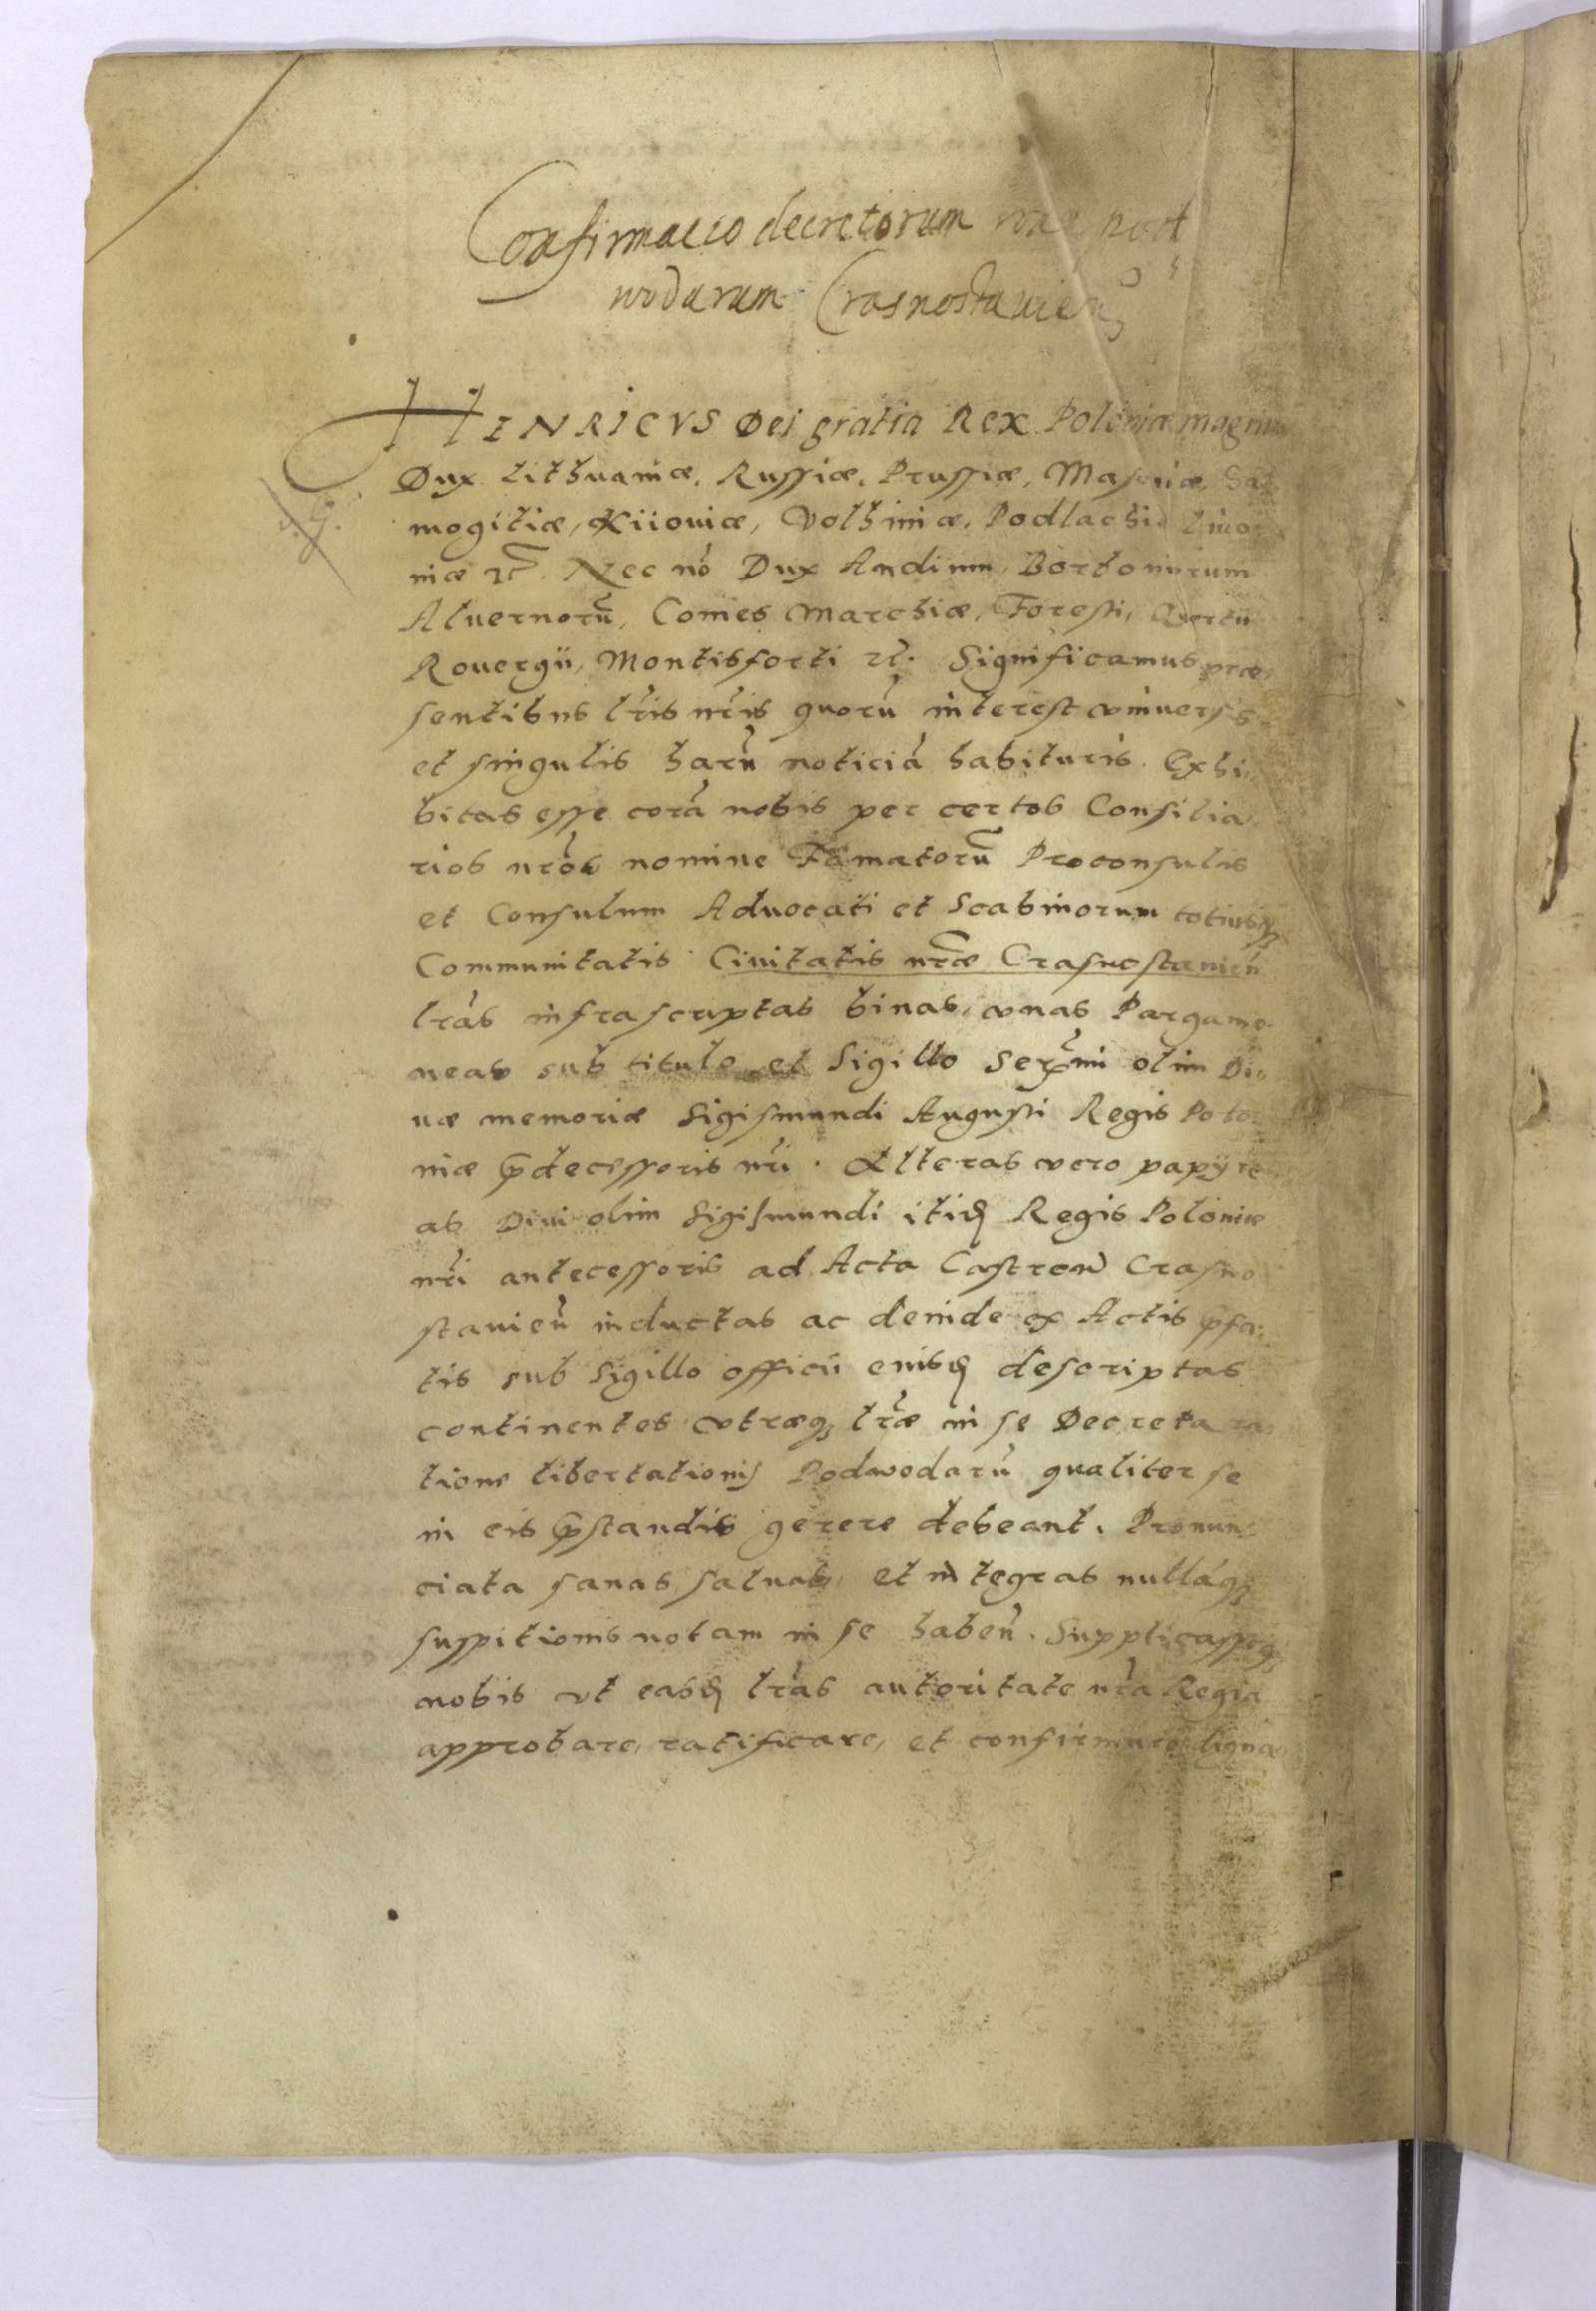 Confirmacio decretorum rōne pod
wodarum Crasnostauien̄
HENRICVS Dei gratia Rex Poloniæ magnus
Dux Lithuaniæ, Russiæ, Prussiæ, Masouiæ, Sa
mogitiæ, Kiiouiæ, Volhiniæ, Podlachiæ Liuo
niæ ꝛc̃. Nec nō Dux Andium, Borboniorum
Aluernorũ, Comes Marchiæ, Foresti, Quertii
Rouergii, Montisforti ꝛc̃. Significamus præ
sentibus lr̃is nr̃is quorũ interest vniuersis
et singulis harũ noticiã habituris. Exhi
bitas esse corã nobis per certos Consilia
rios nr̃os nomine Famatorũ Proconsulis
et Consulum Aduocati et Scabinorum totiusqȝ
Communitatis Ciuitatis nr̃æ Crasnostauien̄
lr̃as infrascriptas binas, vnas Pargame
neas sub titulo et Sigillo Ser̃mi olim Di
uæ memoriæ Sigismundi Augusti Regis Polo
niæ p̃decessoris nr̃i. Alteras vero papyre
as Diui olim Sigismundi itid̃ Regis Poloniæ
nr̃i antecessoris ad Acta Castren̄ Crasno
stauien̄ inductas ac deinde ex Actis p̃fa:
tis sub Sigillo officii eiusd̃ descriptas
continentes vtræqȝ lr̃æ in se Decreta ra
tione libertationis Podwodarũ qualiter se
in eis p̃standis gerere debeant. Pronun:
ciata sanas saluas et integras nullãqȝ
suspitionis notam in se haben̄. Supplicasseqȝ
nobis vt easd̃ lr̃as autoritate nr̃a Regia
approbare, ratificare, et confirmare digna